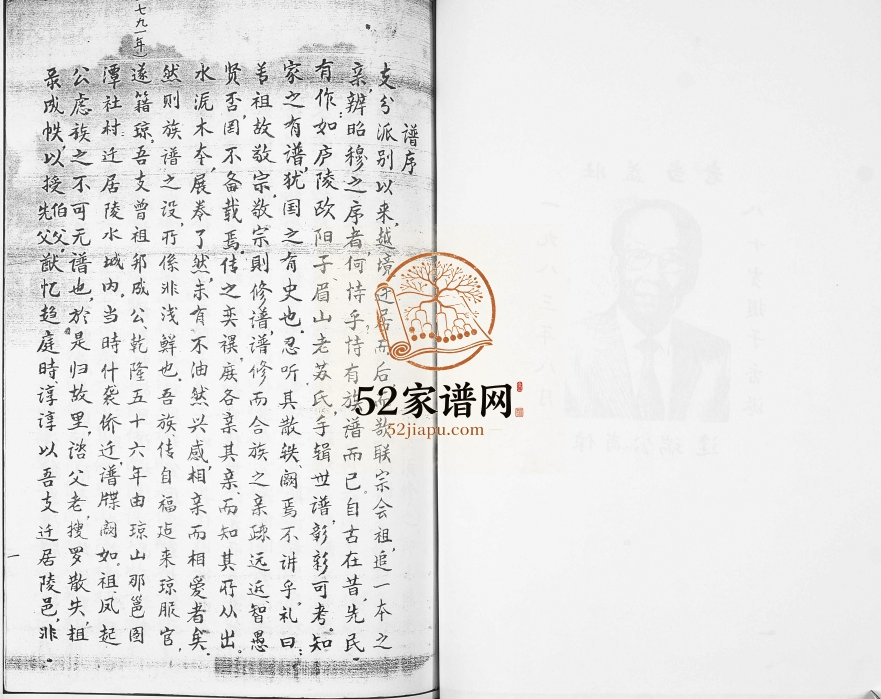 谱序
支分派别以来，越境迁居而后，而欲联宗会祖，追一本之
亲，辨昭穆之序者，何恃乎，恃有族谱而已。自古在昔，先民
有作：如庐陵欧阳子眉山老苏氏，手辑世谱，彰彰可考。知
家之有谱，犹国之有史也。忍听其散轶阙焉不讲乎，礼曰：
善祖故敬宗，敬宗则修谱，谱修而合族之亲疏远近，智愚
贤否，罔不备载焉。传之奕禩，庶各亲其亲，而知其所从出。
水源木本，展券了然，未有不油然兴感，相亲而相爱者矣。
然则族谱之设，所係非浅鲜也。吾族传自福建来琼服官，
遂籍琼，吾支曾祖邦成公，乾隆五十六年由琼山那邕图
七九一年）
潭社村迁居陵水城内，当时什袭侨迁，谱牒阙如。祖凤起
公虑族之不可无谱也，於是归故里，谘父老，搜罗散失，
录成帙，以授先伯父，猷忆趋庭时，谆谆以吾支迁居陵邑，非
一
52家谱网
52jiapu.com
一九八三年八月